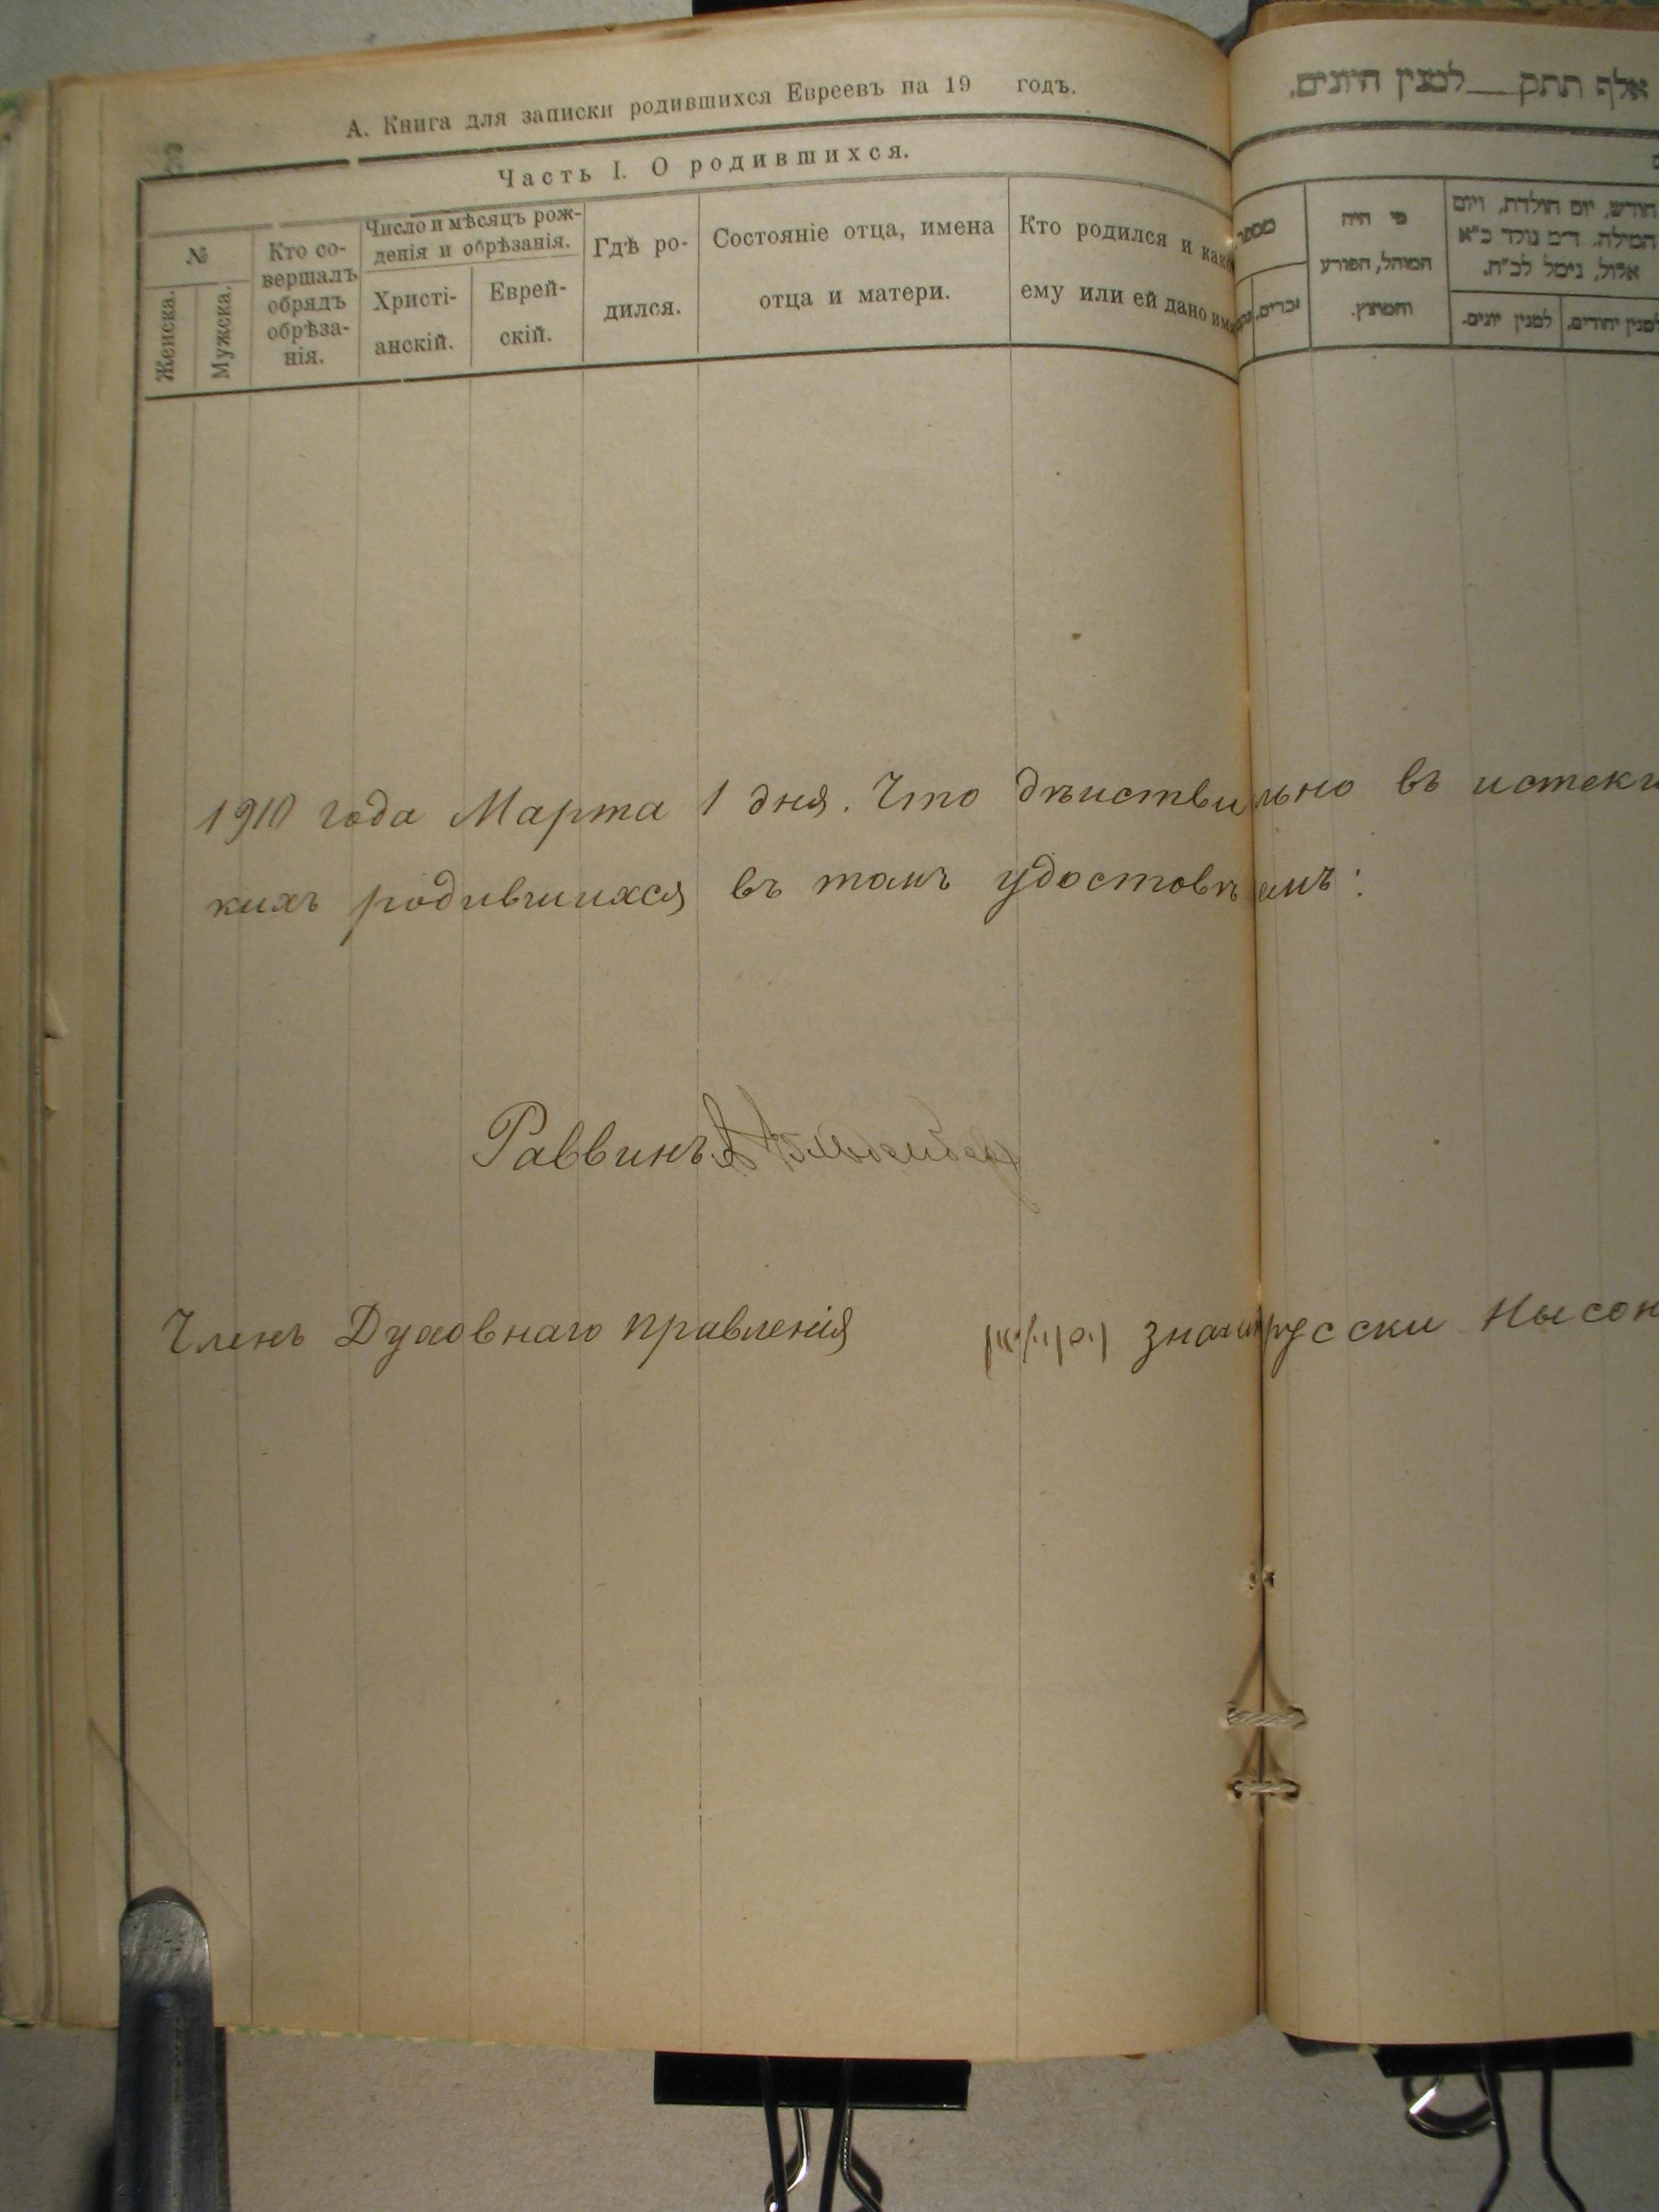 А. Книга для записки родившихся Евреевъ на 19 годъ.
Часть I. О родившихся.
№
Женска.
Мужска.
Кто со-
вершалъ
обрядъ
обрѣза-
нія.
Число и мѣсяцъ рож-
денія и обрѣзанія.
Христі-
анскій.
Еврей-
скій.
Гдѣ ро-
дился.
Состояніе отца, имена
отца и матери.
Кто родился и како
ему или ей дано им
אלף תתק לסנין היונים.
מספר
זכרים.
מי היה
המוהל, הפורע
והמוצץ.
חודש, יום הולדת, ויום
המילה. ד״מ נולד כ״א
אלול, נימל לכ״ח.
למנין יהודים.
למנין יונים.
1910 года Марта 1 дня. Что дѣиствильно въ истек
кихъ родившихся въ томъ удостовѣ емъ:
Раввинъ
Членъ Духовнаго правленія русски Нысон